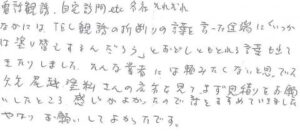 電話観誘、自宅訪問etc 多々それぞれ
なかには TEL観誘の折断りの言葉を言った途端に「いつか
は塗り替えするんだろう」とおどしともとれる言葉も出て
きたりしました。そんな業者には頼みたくないと思っていて
久にさんの名前を見てまず見積りをお願
いしたところ感じがよかったので話をすすめていきました
やはりお願いしてよかったです。